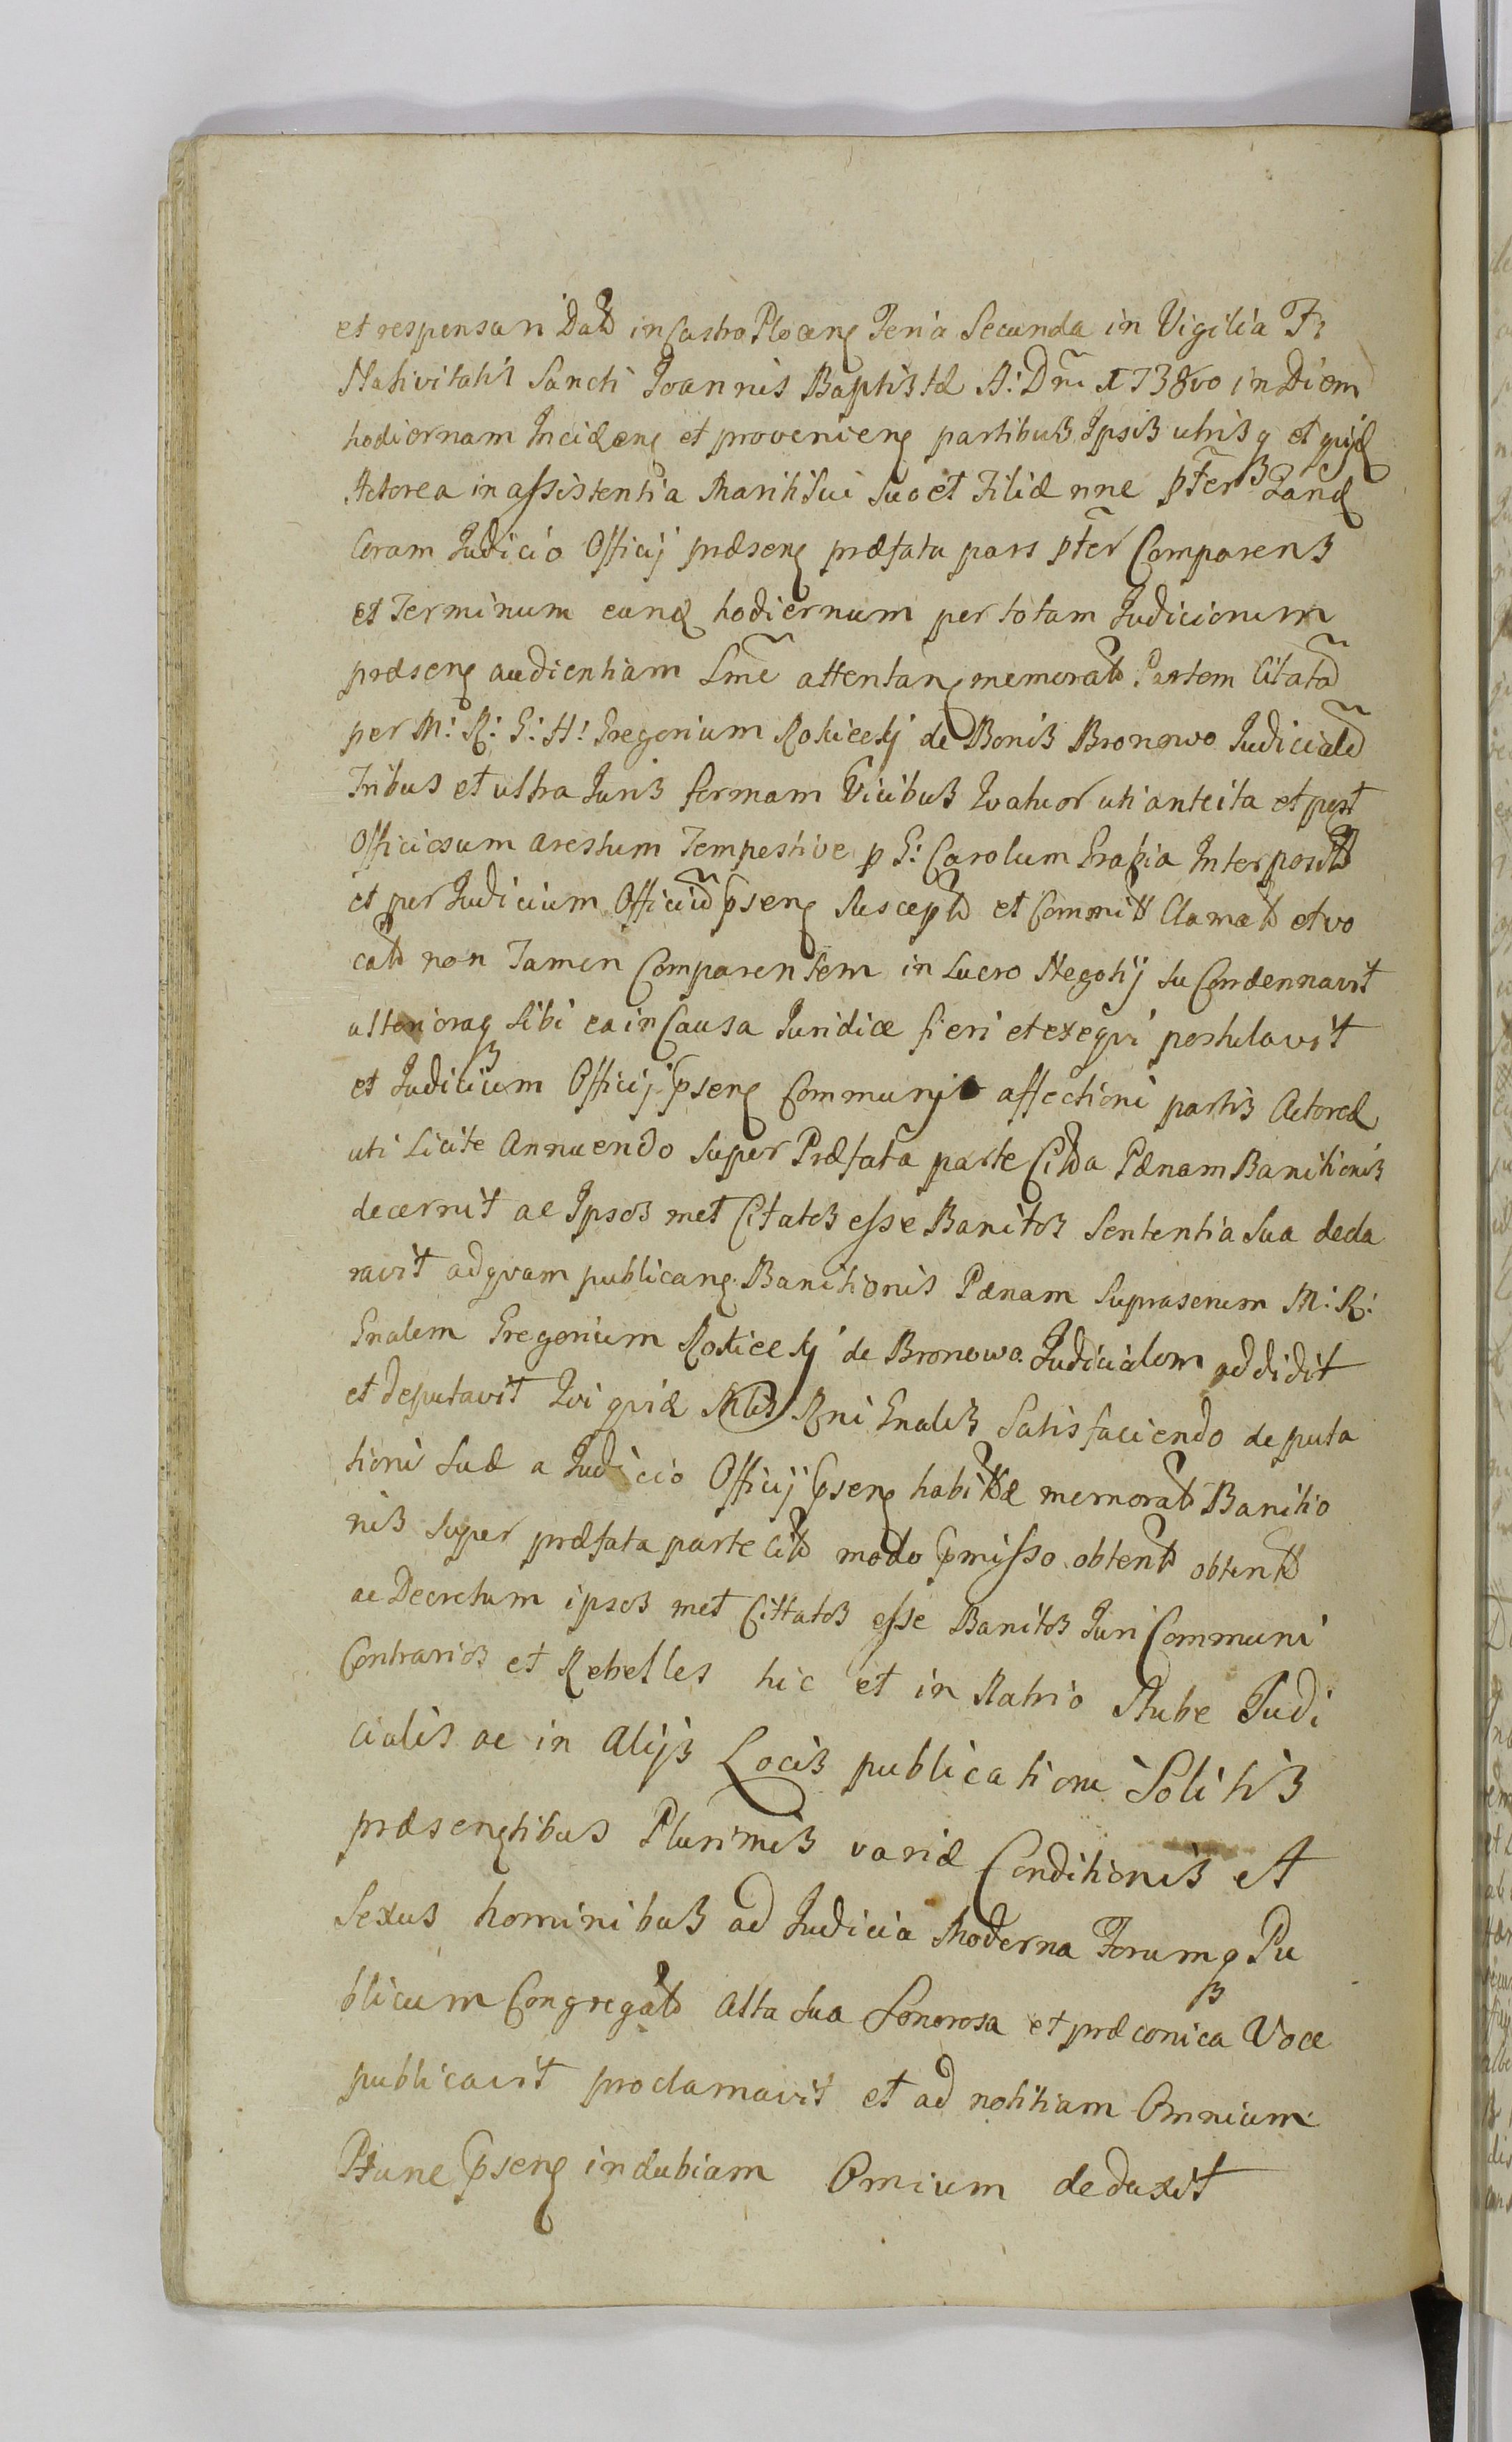 et responsuri Datt in Castro Plocen Feria Secunda in Vigilia F:
Nativitatis Sancti Joannis Baptistæ A: Dni 1738vo in Diem
hodiernam Inciden et provenien partibus Ipsis utrisq et quidæ
Actorea in assistentia Mariti Sui suo et Filiæ nne pter Zandæ
Coram Judicio Officij præsen præfata pars pter Comparens
et Terminum eunq hodiernum per totam Judiciorum
præsen audientiam Lme attentan memoratt Partem Citatã
per M: R: G: H: Gregorium Rokicelj de Bonis Bronowo Judicialẽ
Tribus et ultra Juris formam Vicibus Quatuor uti antcita et post
Officiosum arestum Tempestive p G: Carolum Grabia Interpositt
et per Judicium Officiũ psen Susceptt et Committ Clamatt et vo
catt non Tamen Comparentem in Lucro Negotij su Condennavit
alterioraq sibi ea in Causa Juridice fieri et exequi postulavit
et Judicium Officij psen Communis affectioni partis Actoreæ
uti Licite Annuendo super Præfata parte Citta Pænam Banitionis
decernit ac Ipsos met Citatos esse Banitos Sententia Sua decla
ravit ad quam publican Banitionis Pænam Suprasenem M: R:
Gnalem Gregorium Rokicelj de Bronowo Judicialem addidit
et deputavit Qui quidæ Mlis Rni Gnalis Satisfaciendo deputa
tioni suæ a Judicio Officij psen habittæ memoratt Banitio
nis super præfata parte citt modo pmisso obtentt obtentt
ac Decretum ipsos met Cittatos esse Banitos Juri Communi
Contrarios et Rebelles hic et in Natrio Stube Judi
cialis ac in alijs Locis publicationi Solitis
præsentibus Plurimis variæ Conditionis et
Sexus hominibus ad Judicia Moderna Forumq Pu
blicum Congregatt alta sua Sonorosa et præconica Voce
publicavit proclamavit et ad notitiam Omnium
Hunc psen indubiam Omium deduxit